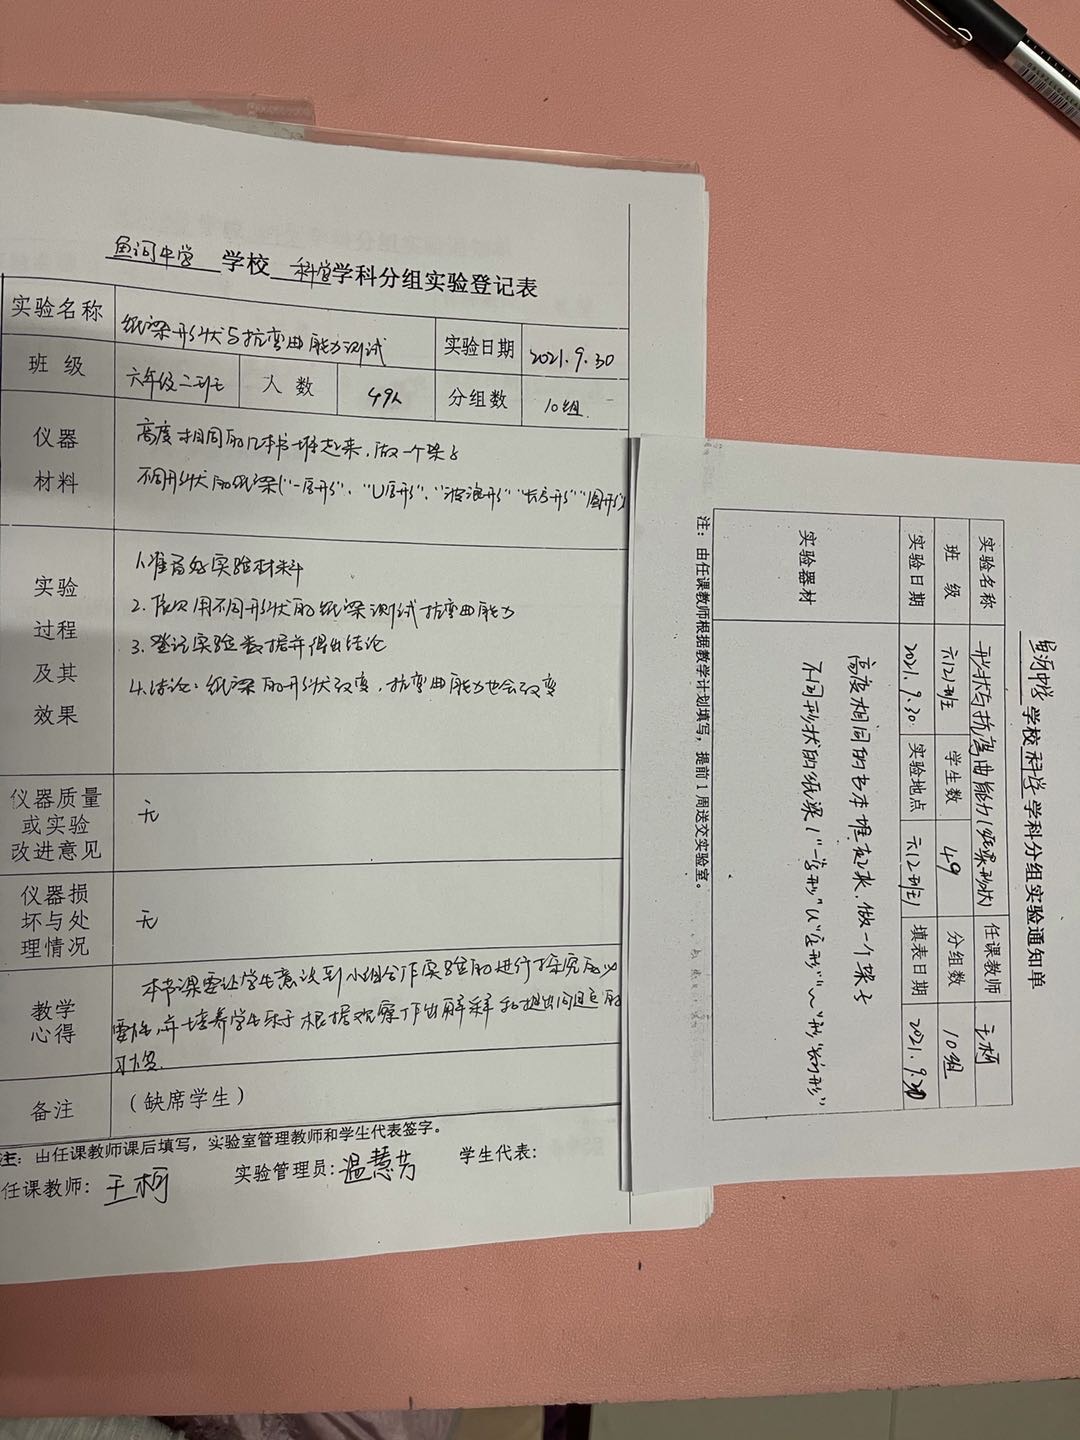 鱼河中学 学校 科学 学科分组实验登记表
实验名称 纸梁形状与抗弯曲能力测试 实验日期 2021.9.30
班级 六年级二班 人数 49人 分组数 10组
仪器材料 高度相同的几本书堆起来,做一个架子
不同形状的纸梁("一字形"、"U字形"、"波浪形" "长方形" "圆形")
实验过程及其效果 1.准备好实验材料
2.依次用不同形状的纸梁测试抗弯曲能力
3.登记实验数据并得出结论
4.结论:纸梁的形状改变,抗弯曲能力也会改变
仪器质量或实验改进意见 无
仪器损坏与处理情况 无
教学心得 本节课要让学生意识到小组合作实验的进行探究的
重要性,并培养学生乐于根据观察作出解释和提出问题的
习惯.
备注 (缺席学生)
注:由任课教师课后填写,实验室管理教师和学生代表签字。
任课教师: 王柯 实验管理员: 温慧芳 学生代表:
鱼河中学 学校 科学 学科分组实验通知单
实验名称 形状与抗弯曲能力(纸梁形状) 任课教师 王柯
班级 六(2)班 学生数 49 分组数 10组
实验日期 2021.9.30 实验地点 六(2)班 填表日期 2021.9.20
实验器材 高度相同的书本堆起来.做一个架子
不同形状的纸梁("一字形" "U"字形" "~"形 "长方形"
注:由任课教师根据教学计划填写,提前1周送交实验室。